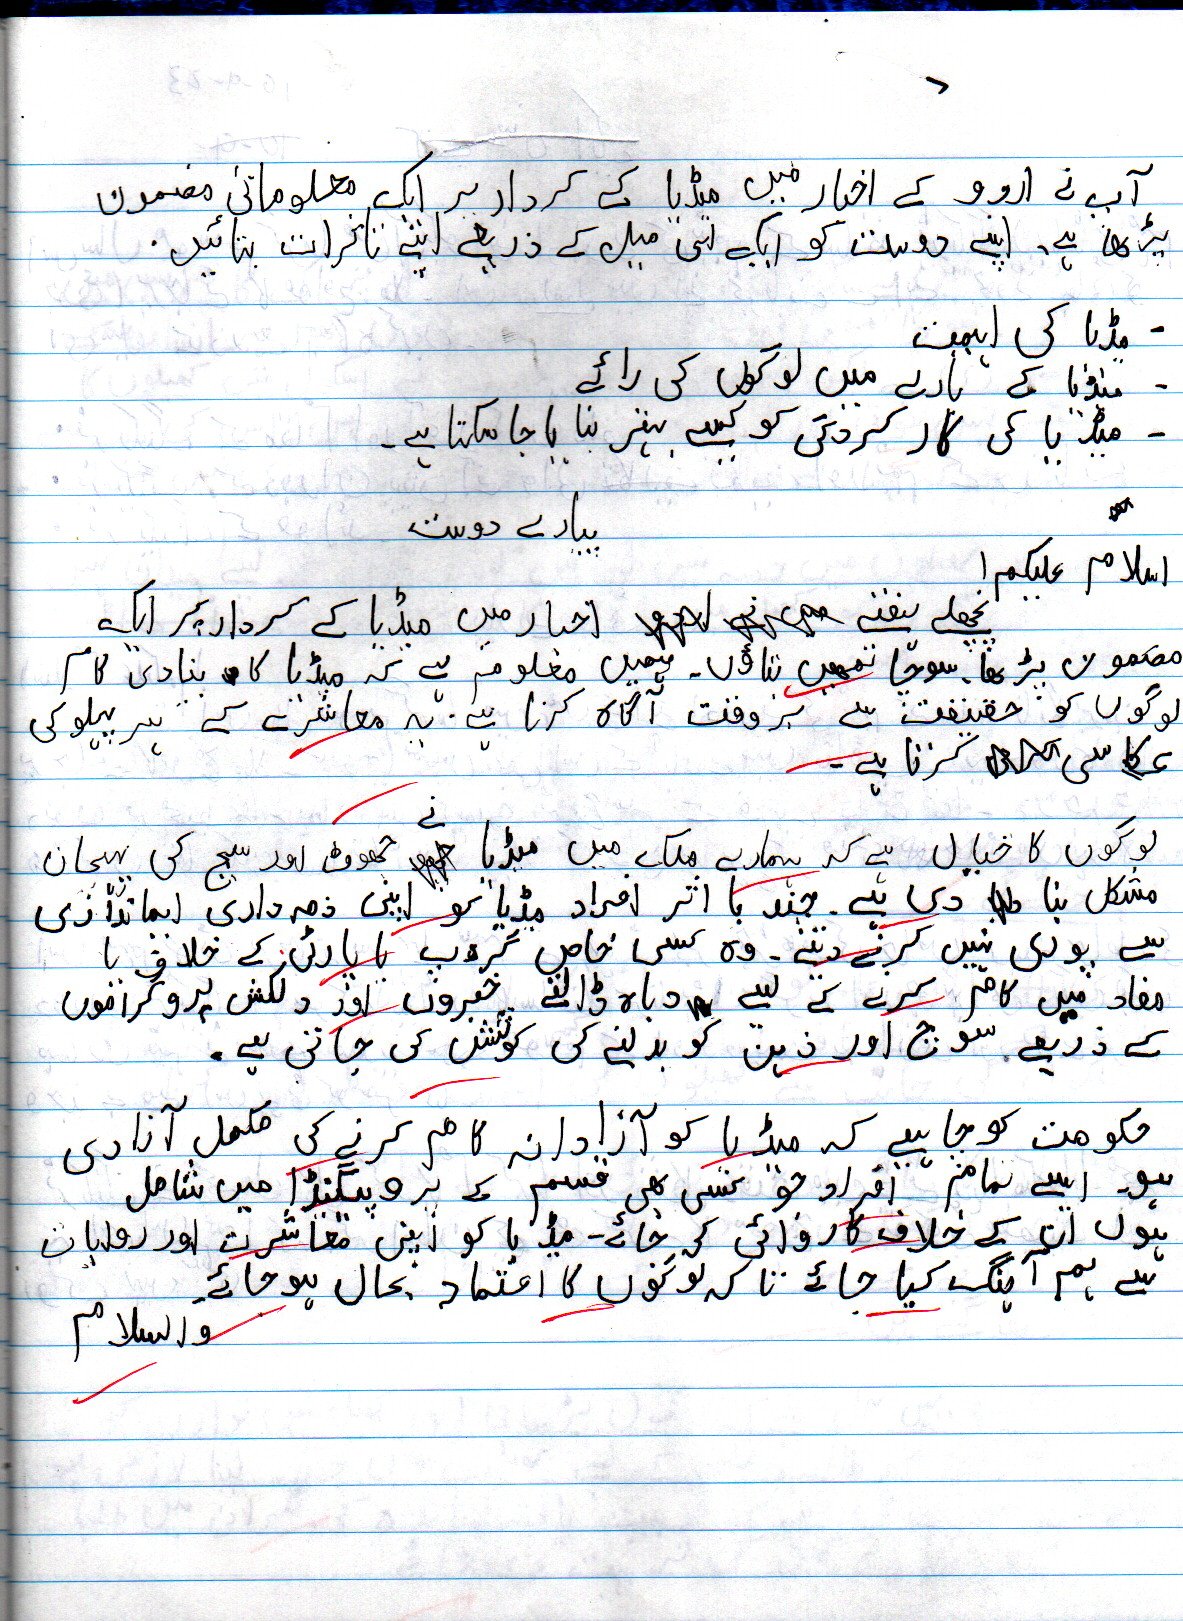 آپ نے اردو کے اخبار میں میڈیا کے کردار پر ایک معلوماتی مضمون
پڑھا ہے۔ اپنے دوست کو ایک ای میل کے ذریعے اپنے تاثرات بتائیں۔
- میڈیا کی اہمیت
- میڈیا کے بارے میں لوگوں کی رائے
- میڈیا کی کارکردگی کو کیسے بہتر بنایا جا سکتا ہے۔
پیارے دوست
اسلام علیکم!
پچھلے ہفتے اخبار میں میڈیا کے کردار پر ایک
مضمون پڑھا۔ سوچا تمہیں بتاؤں۔ ہمیں معلوم ہے کہ میڈیا کا بنادی کام
لوگوں کو حقیقت سے بروقت آگاہ کرنا ہے۔ یہ معاشرے کے ہر پہلو کی
عکاسی کرتا ہے۔
لوگوں کا خیال ہے کہ ہمارے ملک میں میڈیا نے جھوٹ اور سچ کی پہچان
مشکل بنا دی ہے۔ چند با اثر افراد میڈیا کو اپنی ذمہ داری ایمانداری
سے پوری نہیں کرنے دیتے۔ وہ کسی خاص گروپ یا پارٹی کے خلاف یا
مفاد میں کام کرنے کے لیے دباہ ڈالتے خبروں اور دلکش پروگراموں
کے ذریعے سوچ اور ذہن کو بدلنے کی کوشش کی جاتی ہے۔
حکومت کو چاہیے کہ میڈیا کو آزادانہ کام کرنے کی مکمل آزادی
ہو۔ ایسے تمام افراد جو کسی بھی قسم کے پروپیگنڈا میں شامل
ہوں ان کے خلاف کاروائی کی جائے۔ میڈیا کو اپنی معاشرت اور روایات
سے ہم آہنگ کیا جائے تاکہ لوگوں کا اعتماد بحال ہو جائے۔
واسلام